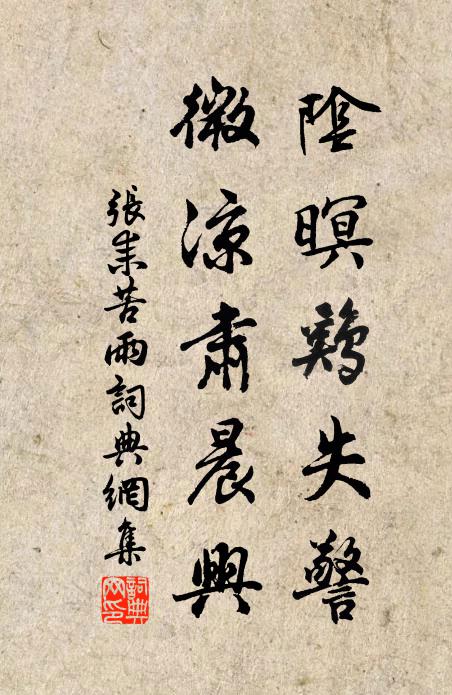 陰暝鷄失警
微涼肅晨興
張耒苦雨詞典網集